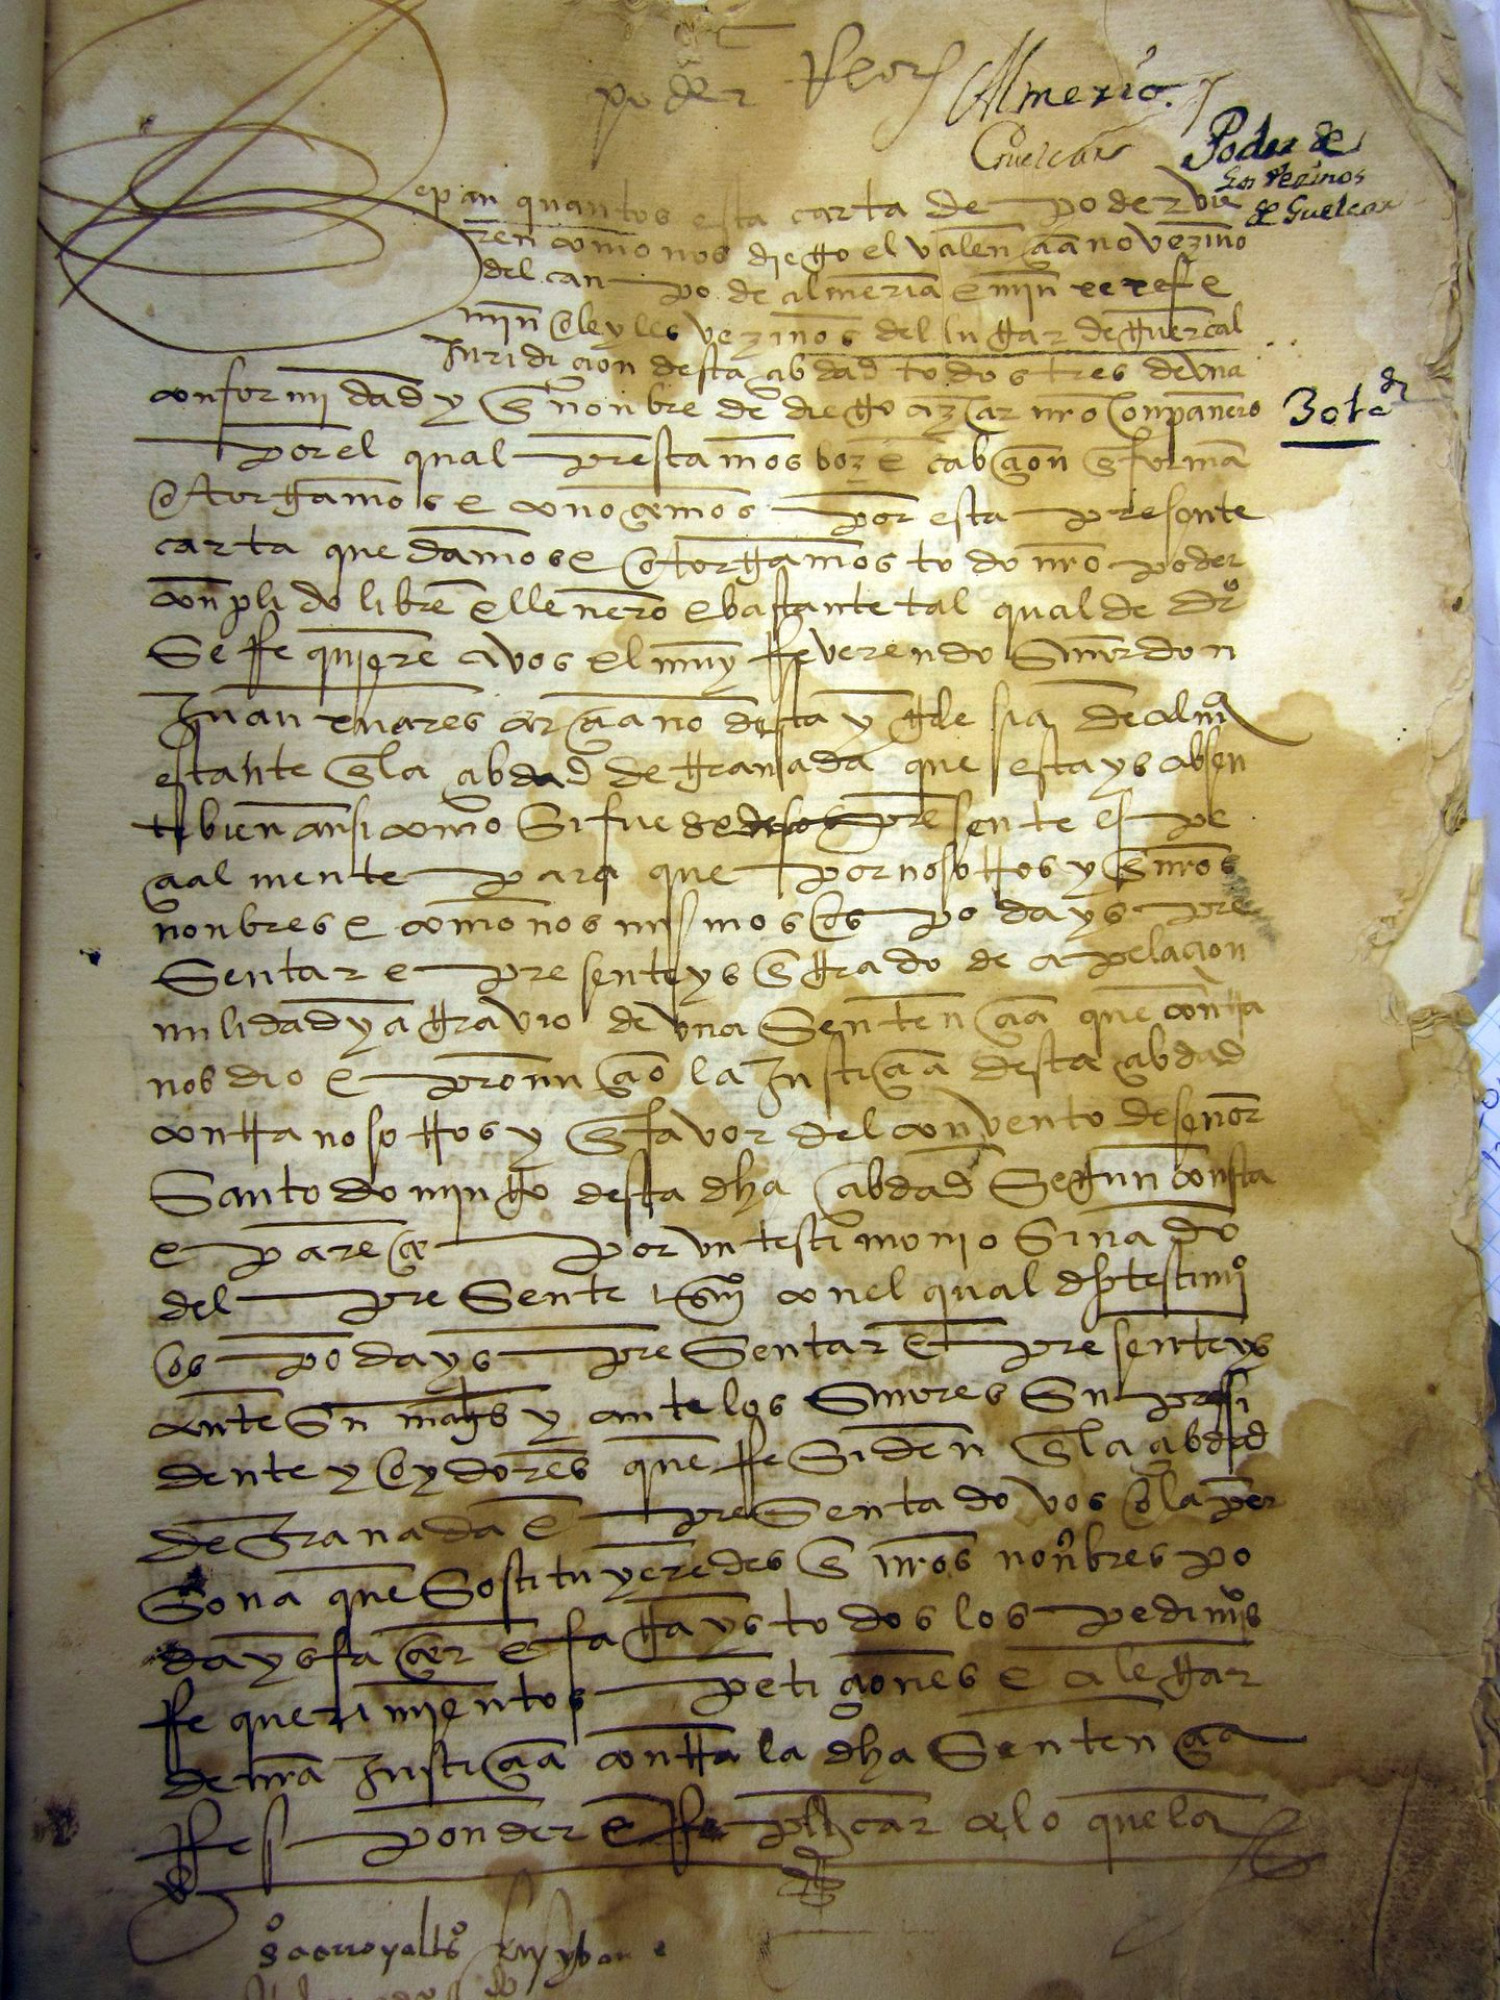 poder
Almeria y
Guelcar
Poder de
los vezinos
de Guelcar
epan quantos esta carta de poder vie
ren como nos diego el valençiano vezino
del canpo de almeria e min
min vezinos del lugar de guercal
Juridiçion desta çibdad todos tres de una
conformidad y en nonbre de diego aznar nro conpanero
por el qual prestamos boz e cabçion en forma
otorgamos e conoçemos por esta presente
carta que damos e otorgamos todo nro poder
conplido libre e llenero e bastante tal qual de dro
se rrequiere a vos el muy rreverendo señor don
Juan arçediano desta yglesia de alma
estante en la çibdad de granada que estays absen
te bien ansi como si fuesedes presente espe
çialmente para que por nosotros y en nros
nonbres e como nos mismos os podays pre
sentar e presenteys en grado de apelaçion
nulidad y agravio de una sentençia que contra
nos dio e pronunçio la Justiçia desta çibdad
contra nosotros y en favor del convento de señor
santo domingo desta dha çibdad segun consta
e pareçe por un testimonio sinado
del presente esno con el qual dho testimio
os podays presentar e presenteys
ante su magt y ante los señores su presi
dente y oydores que rresiden en la çibdad
de Granada e presentado vos o la per
sona que sostituyeredes en nros nonbres po
days façer e fagays todos los pedimos
rrequerimientos petiçiones e alegar
de nra Justiçia contra la dha sentençia
rresponder e rreplicar a lo que la